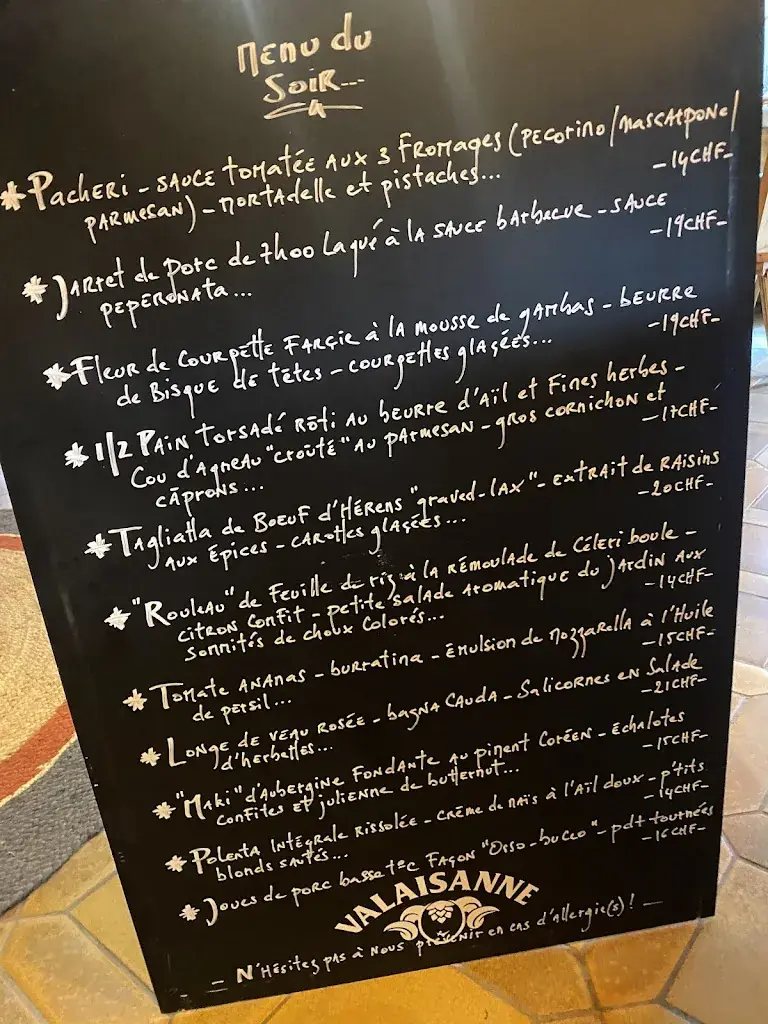 Menu du
Soir...
* Pacheri - sauce tomatée aux 3 fromages (pecorino/mascarpone/
parmesan) - mortadelle et pistaches...
- 14CHF-
* Jarret de porc de 7h00 laqué à la sauce barbecue - sauce
peperonata...
- 19CHF-
* Fleur de courgette farçie à la mousse de gambas - beurre
de bisque de têtes - courgettes glaçées...
- 19CHF-
* 1/2 Pain torsadé rôti au beurre d'aïl et fines herbes -
Cou d'agneau "croûté" au parmesan - gros cornichon et
câprons...
- 17CHF-
* Tagliatta de boeuf d'Hérens "graved-lax" - extrait de raisins
aux épices - carottes glaçées...
- 20CHF-
* "Rouleau" de feuille de riz à la rémoulade de céleri boule -
citron confit - petite salade aromatique du jardin aux
somnités de choux colorés...
- 14CHF-
* Tomate ananas - burratina - émulsion de mozzarella à l'huile
de persil...
- 15CHF-
* Longe de veau rosée - bagna cauda - salicornes en salade
d'herbettes...
- 21CHF-
* "Maki" d'aubergine fondante au piment coréen - échalotes
confites et julienne de butternut...
- 15CHF-
* Polenta intégrale rissolée - crème de maïs à l'aïl doux - p'tits
blonds sautés...
- 14CHF-
* Joues de porc basse t°c façon "Osso-bucco" - pdt tournées
- 16CHF-
VALAISANNE
- N'hésitez pas à nous prévenir en cas d'allergie(s)! -